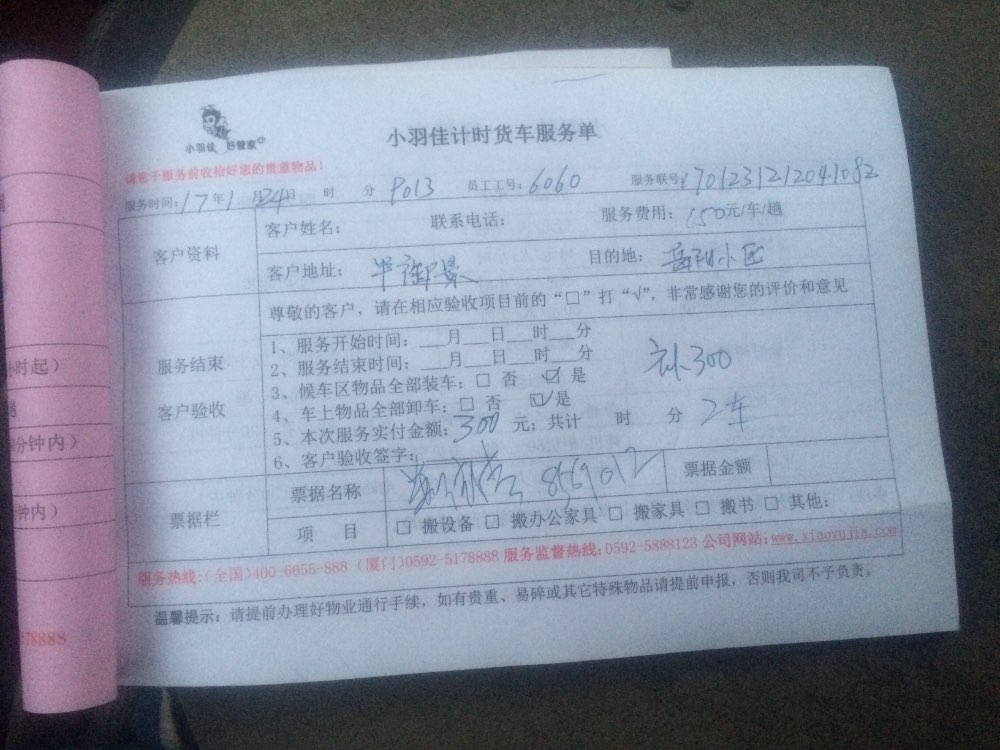 小羽佳 好管家
小羽佳计时货车服务单
请您于服务前收拾好您的贵重物品!
服务时间: 17年1月24日 时 分 P013 员工工号: 6060 服务联号: 1701231212041082
客户资料
客户姓名: 联系电话: 服务费用: 150元/车/趟
客户地址: 半御景 目的地: 小区
尊敬的客户，请在相应验收项目前的“□”打“√”，非常感谢您的评价和意见
服务结束
客户验收
1、服务开始时间: ___月___日___时___分
2、服务结束时间: ___月___日___时___分
3、候车区物品全部装车: □ 否 ☑ 是
补300
4、车上物品全部卸车: □ 否 ☑ 是
5、本次服务实付金额: 300 元; 共计 时 分 2车
6、客户验收签字:
8569012
票据栏
票据名称 票据金额
项 目 □ 搬设备 □ 搬办公家具 □ 搬家具 □ 搬书 □ 其他:
服务热线:(全国)400-6655-888 (厦门)0592-5178888 服务监督热线:0592-5888123 公司网站:www.xiaoyujia.com
温馨提示: 请提前办理好物业通行手续，如有贵重、易碎或其它特殊物品请提前申报，否则我司不予负责。
小时起)
分钟内)
钟内)
78888